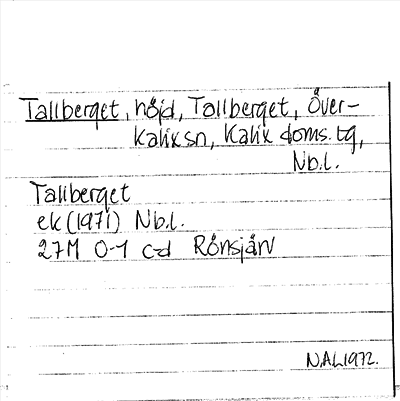 Tallberget, höjd, Tallberget, Över-
Kalix sn, Kalix doms. tg,
Nb.l.
Tallberget
ek (1971) Nb.l.
27M 0-1 c-d Rönsjärv
N.AL.1972.